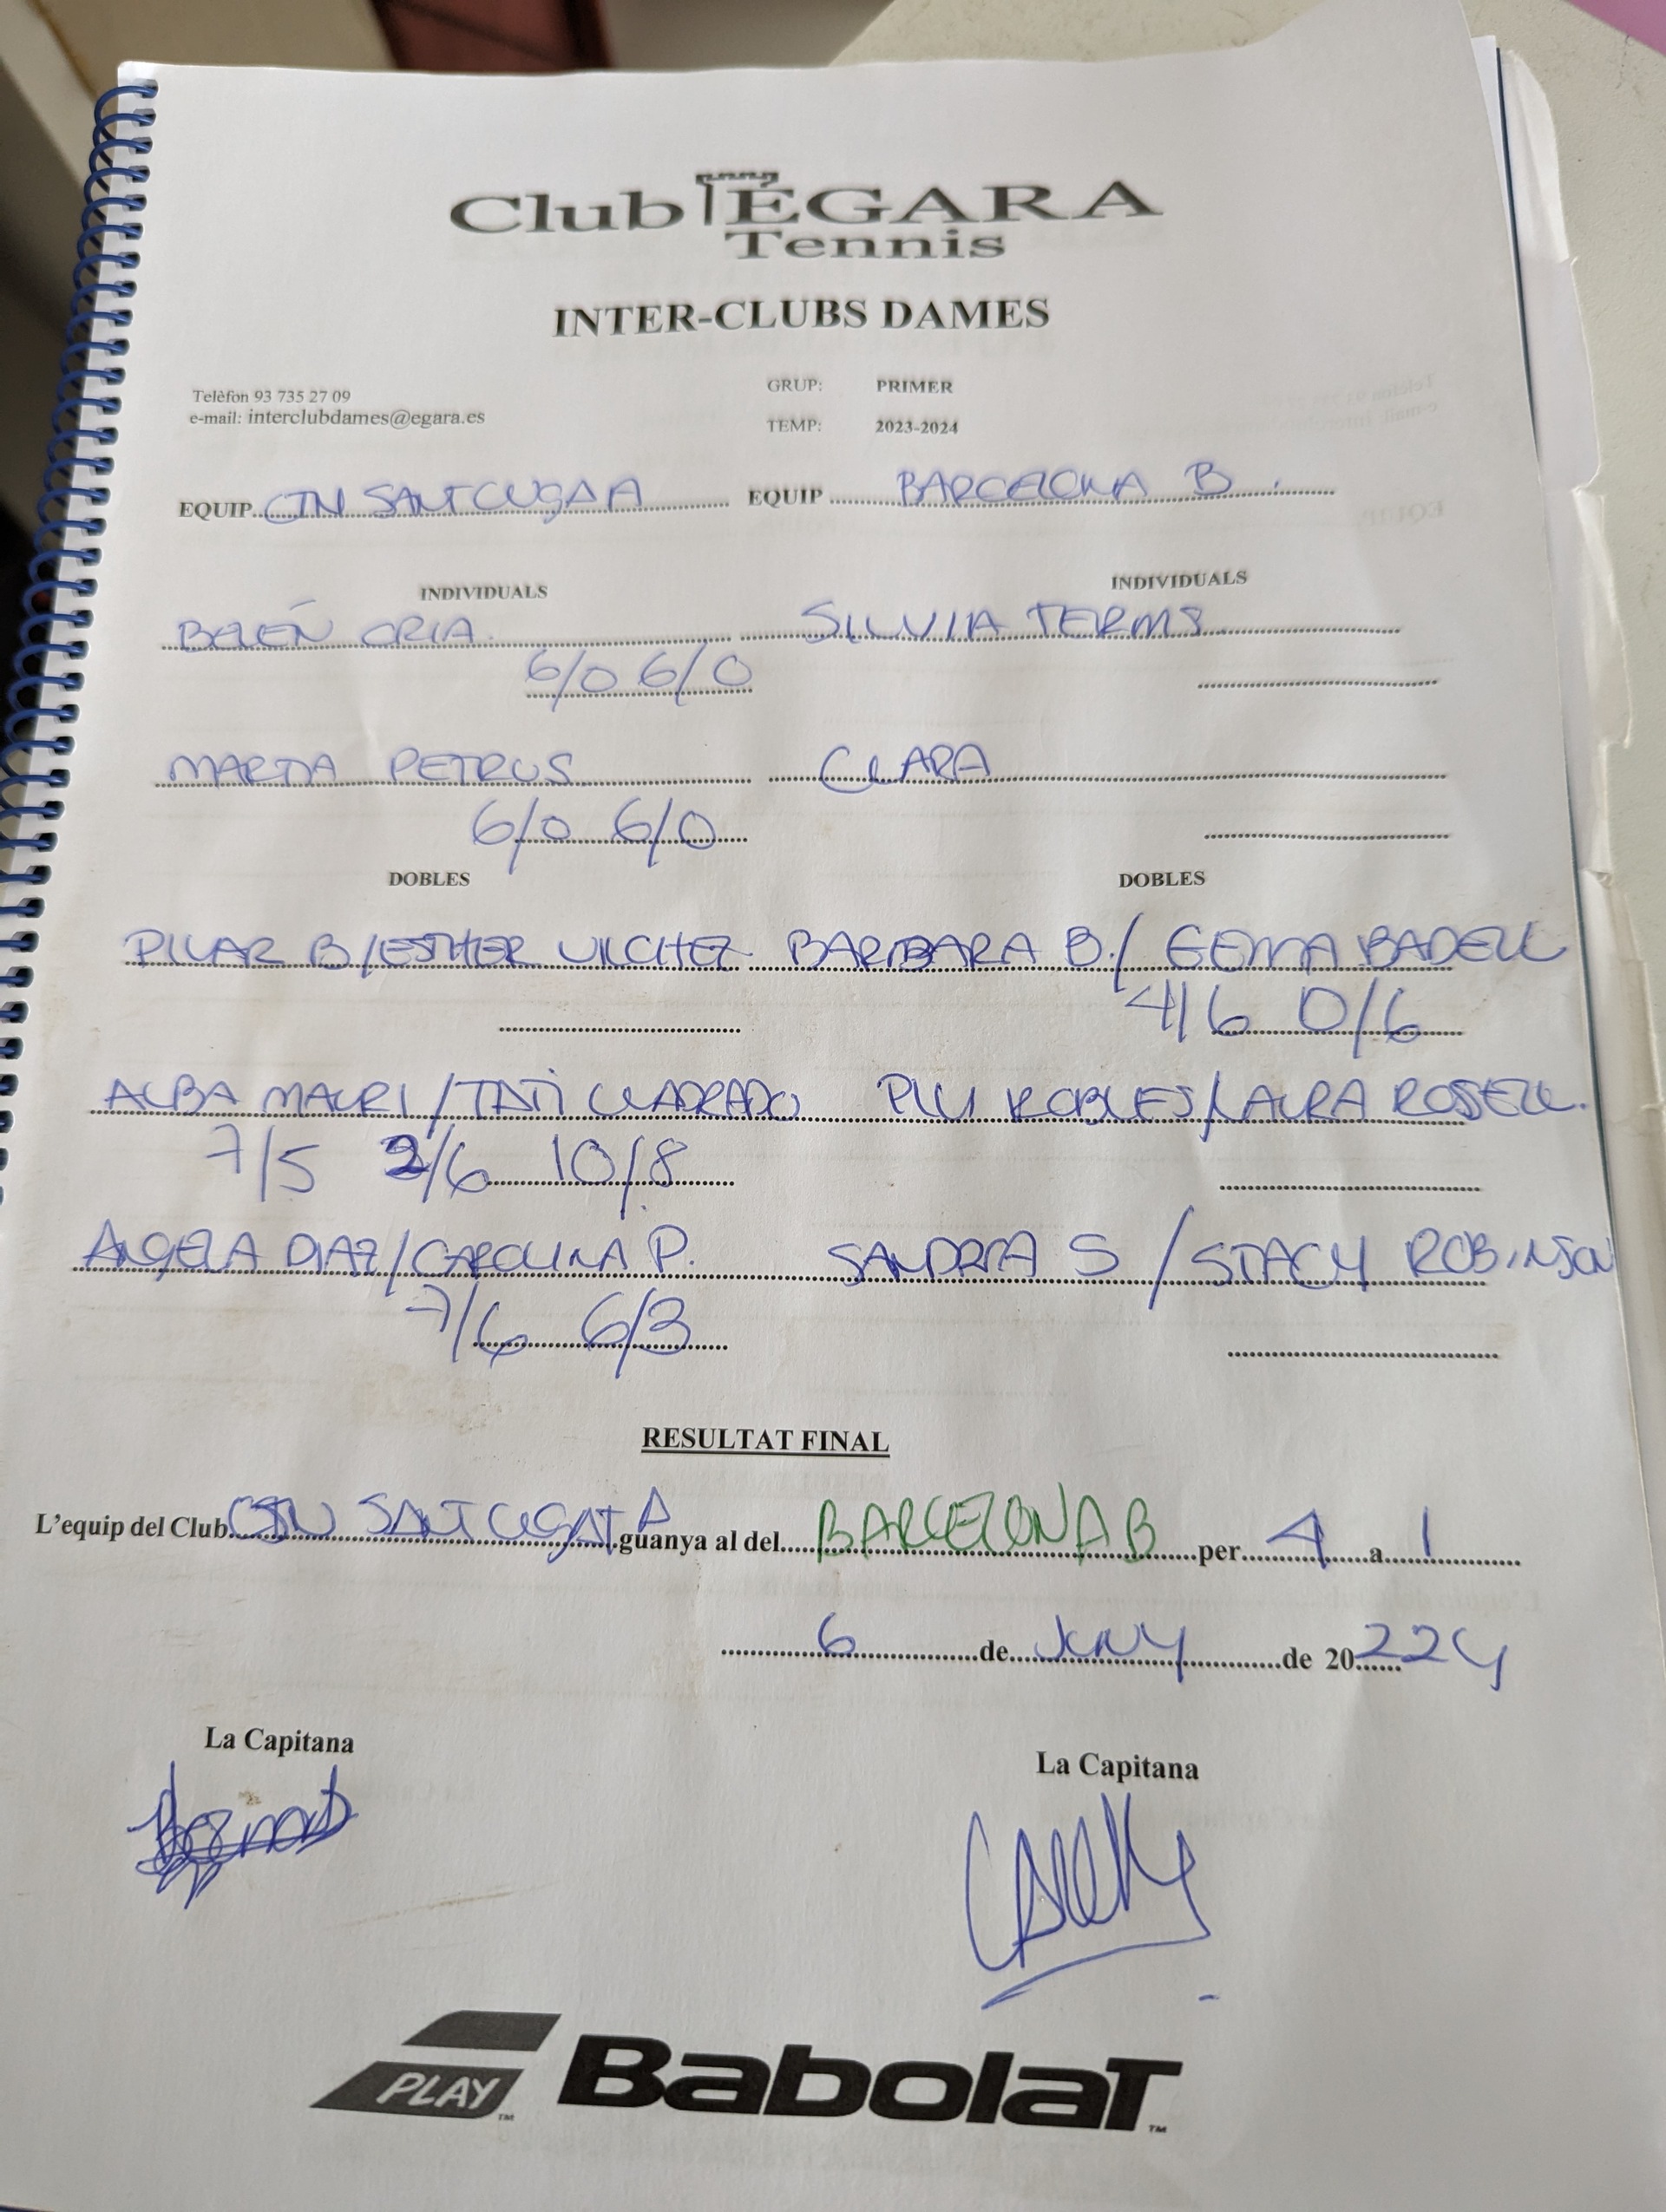 Club ÈGARA
Tennis
INTER-CLUBS DAMES
Telèfon 93 735 27 09
e-mail: interclubdames@egara.es
GRUP: PRIMER
TEMP: 2023-2024
EQUIP CTN SANT CUGA A EQUIP BARCELONA B
INDIVIDUALS INDIVIDUALS
BELÉN ORIA SILVIA TERMS
6/0 6/0
MARTA PETRUS CLARA
6/0 6/0
DOBLES DOBLES
PILAR B/ESTHER VILCHEZ BARBARA B./ GEMMA BADELL
4/6 0/6
ALBA MAURI/TATI CUADRADO PILI ROBLES/LAURA ROSELL.
7/5 2/6 10/8
ANGELA DIAZ/CAROLINA P. SANDRA S / STACY ROBINSON
7/6 6/3
RESULTAT FINAL
L'equip del Club SANT CUGAT A guanya al del BARCELONA B per 4 a 1
6 de JUNY de 20224
La Capitana La Capitana
PLAY™ BabolaT™